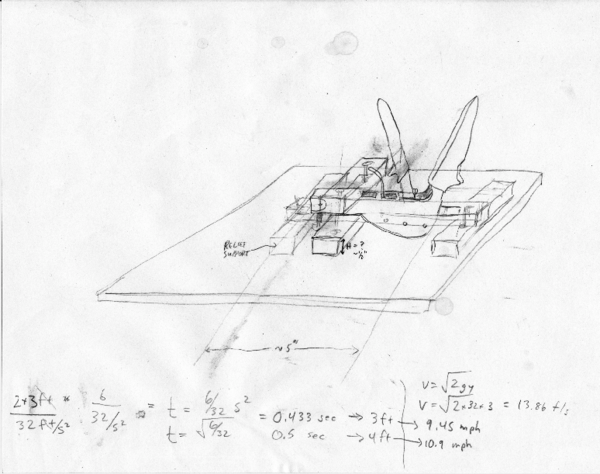 RELIEF
SUPPORT
H = ?
~½"
~5"
2*3ft / 32ft/s² = 6 / 32/s² = t = 6/32 s²
t = √6/32
= 0.433 sec → 3ft → 9.45 mph
0.5 sec → 4ft → 10.9 mph
V = √2gy
V = √2×32×3 = 13.86 f/s